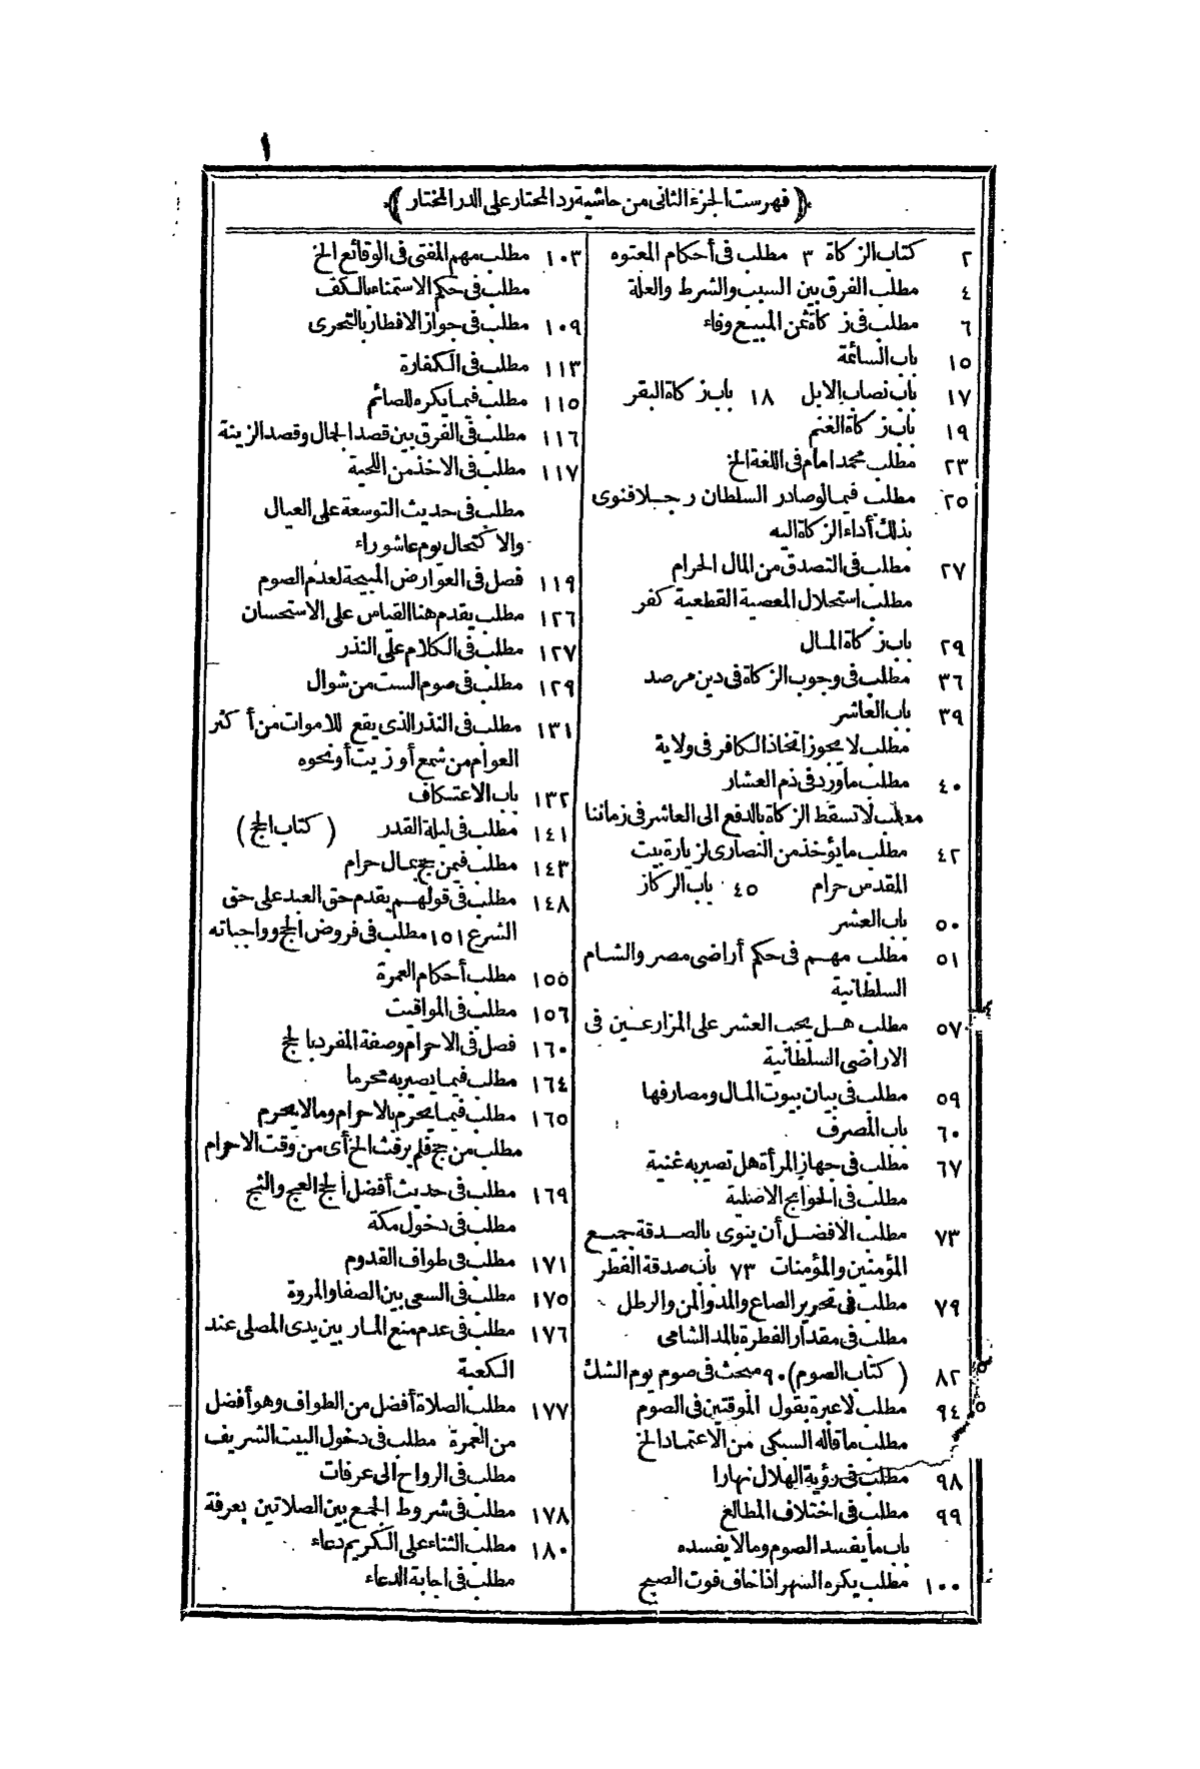 ١
﴿ فهرست الجزء الثانى من حاشية رد المحتار على الدر المختار ﴾
٢ كتاب الزكاة ٣ مطلب فى أحكام المعتوه
٤ مطلب الفرق بين السبب والشرط والعلة
٦ مطلب فى زكاة ثمن المبيع وفاء
١٥ باب السائمة
١٧ باب نصاب الابل ١٨ باب زكاة البقر
١٩ باب زكاة الغنم
٢٣ مطلب محمد امام فى اللغة الخ
٢٥ مطلب فيما لو صادر السلطان رجلا فنوى
بذلك أداء الزكاة اليه
٢٧ مطلب فى التصدق من المال الحرام
مطلب استحلال المعصية القطعية كفر
٢٩ باب زكاة المال
٣٦ مطلب فى وجوب الزكاة فى دين مرصد
٣٩ باب العاشر
مطلب لا يجوز اتخاذ الكافر فى ولاية
٤٠ مطلب ما ورد فى ذم العشار
مطلب لا تسقط الزكاة بالدفع الى العاشر فى زماننا
٤٢ مطلب ما يؤخذ من النصارى لزيارة بيت
المقدس حرام ٤٥ باب الركاز
٥٠ باب العشر
٥١ مطلب مهم فى حكم أراضى مصر والشام
السلطانية
٥٧ مطلب هل يجب العشر على المزارعين فى
الاراضى السلطانية
٥٩ مطلب فى بيان بيوت المال ومصارفها
٦٠ باب المصرف
٦٧ مطلب فى جهاز المرأة هل تصير به غنية
مطلب فى الحوائج الاصلية
٧٣ مطلب الافضل أن ينوى بالصدقة جميع
المؤمنين والمؤمنات ٧٣ باب صدقة الفطر
٧٩ مطلب فى تحرير الصاع والمد والمن والرطل
مطلب فى مقدار الفطرة بالمد الشامى
٨٢ (كتاب الصوم) ٩٠ مبحث فى صوم يوم الشك
٩٤ مطلب لا عبرة بقول الموقتين فى الصوم
مطلب ما قاله السبكى من الاعتماد الخ
٩٨ مطلب فى رؤية الهلال نهارا
٩٩ مطلب فى اختلاف المطالع
باب ما يفسد الصوم وما لا يفسده
١٠٠ مطلب يكره السهر اذا خاف فوت الصبح
١٠٣ مطلب مهم المفتى فى الوقائع الخ
مطلب فى حكم الاستمناء بالكف
١٠٩ مطلب فى جواز الافطار بالتحرى
١١٣ مطلب فى الكفارة
١١٥ مطلب فيما يكره للصائم
١١٦ مطلب فى الفرق بين قصد الجمال وقصد الزينة
١١٧ مطلب فى الاخذ من اللحية
مطلب فى حديث التوسعة على العيال
والاكتحال يوم عاشوراء
١١٩ فصل فى العوارض المبيحة لعدم الصوم
١٢٦ مطلب يقدم هنا القياس على الاستحسان
١٢٧ مطلب فى الكلام على النذر
١٢٩ مطلب فى صوم الست من شوال
١٣١ مطلب فى النذر الذى يقع للاموات من أكثر
العوام من شمع أو زيت أو نحوه
١٣٢ باب الاعتكاف
١٤١ مطلب فى ليلة القدر (كتاب الحج)
١٤٣ مطلب فيمن حج بمال حرام
١٤٨ مطلب فى قولهم يقدم حق العبد على حق
الشرع ١٥١ مطلب فى فروض الحج وواجباته
١٥٥ مطلب أحكام العمرة
١٥٦ مطلب فى المواقيت
١٦٠ فصل فى الاحرام وصفة المفرد بالحج
١٦٤ مطلب فيما يصير به محرما
١٦٥ مطلب فيما يحرم بالاحرام وما لا يحرم
مطلب من حج فلم يرفث الخ أى من وقت الاحرام
١٦٩ مطلب فى حديث أفضل الحج العج والثج
مطلب فى دخول مكة
١٧١ مطلب فى طواف القدوم
١٧٥ مطلب فى السعى بين الصفا والمروة
١٧٦ مطلب فى عدم منع المار بين يدى المصلى عند
الكعبة
١٧٧ مطلب الصلاة أفضل من الطواف وهو أفضل
من العمرة مطلب فى دخول البيت الشريف
مطلب فى الرواح الى عرفات
١٧٨ مطلب فى شروط الجمع بين الصلاتين بعرفة
١٨٠ مطلب الثناء على الكريم دعاء
مطلب فى اجابة الدعاء